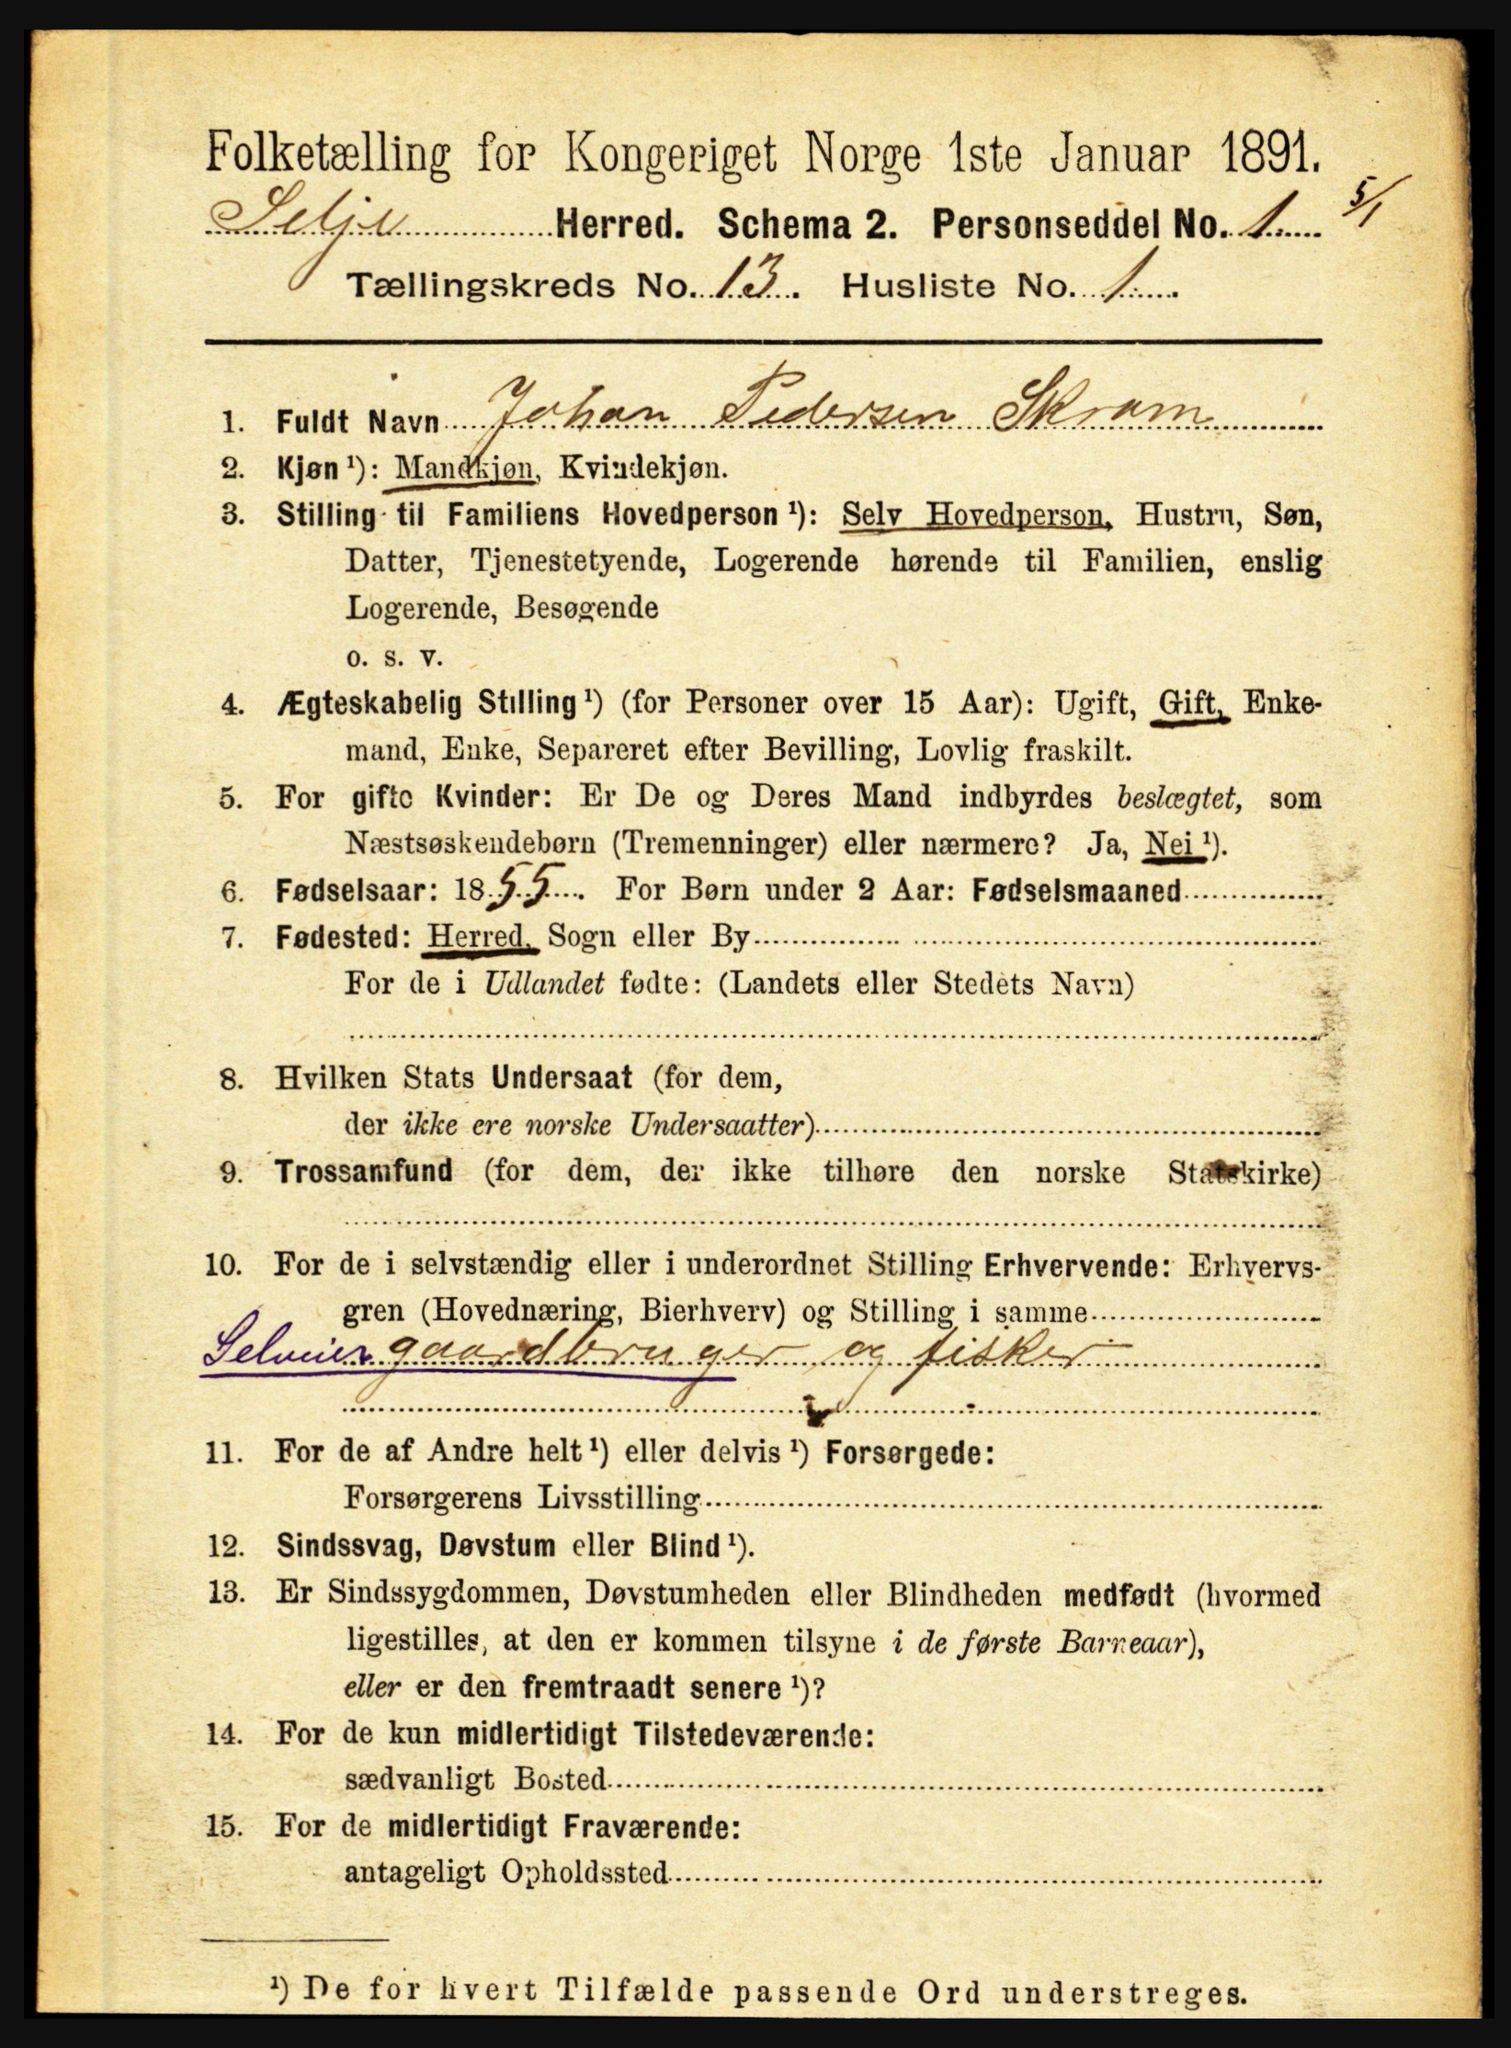 Folketælling for Kongeriget Norge 1ste Januar 1891.
Selje Herred. Schema 2. Personseddel No. 1 5/1
Tællingskreds No. 13. Husliste No. 1.
1. Fuldt Navn Johan Pedersen Skram
2. Kjøn ¹): Mandkjøn, Kvindekjøn.
3. Stilling til Familiens Hovedperson ¹): Selv Hovedperson, Hustru, Søn,
Datter, Tjenestetyende, Logerende hørende til Familien, enslig
Logerende, Besøgende
o. s. v.
4. Ægteskabelig Stilling ¹) (for Personer over 15 Aar): Ugift, Gift, Enke-
mand, Enke, Separeret efter Bevilling, Lovlig fraskilt.
5. For gifte Kvinder: Er De og Deres Mand indbyrdes beslægtet, som
Næstsøskendebørn (Tremenninger) eller nærmere? Ja, Nei ¹).
6. Fødselsaar: 1855. For Børn under 2 Aar: Fødselsmaaned
7. Fødested: Herred, Sogn eller By
For de i Udlandet fødte: (Landets eller Stedets Navn)
8. Hvilken Stats Undersaat (for dem,
der ikke ere norske Undersaatter)
9. Trossamfund (for dem, der ikke tilhøre den norske Statskirke)
10. For de i selvstændig eller i underordnet Stilling Erhvervende: Erhvervs-
gren (Hovednæring, Bierhverv) og Stilling i samme
Selveier gaardbruger og fisker
11. For de af Andre helt ¹) eller delvis ¹) Forsørgede:
Forsørgerens Livsstilling
12. Sindssvag, Døvstum eller Blind ¹).
13. Er Sindssygdommen, Døvstumheden eller Blindheden medfødt (hvormed
ligestilles, at den er kommen tilsyne i de første Barneaar),
eller er den fremtraadt senere ¹)?
14. For de kun midlertidigt Tilstedeværende:
sædvanligt Bosted
15. For de midlertidigt Fraværende:
antageligt Opholdssted
¹) De for hvert Tilfælde passende Ord understreges.